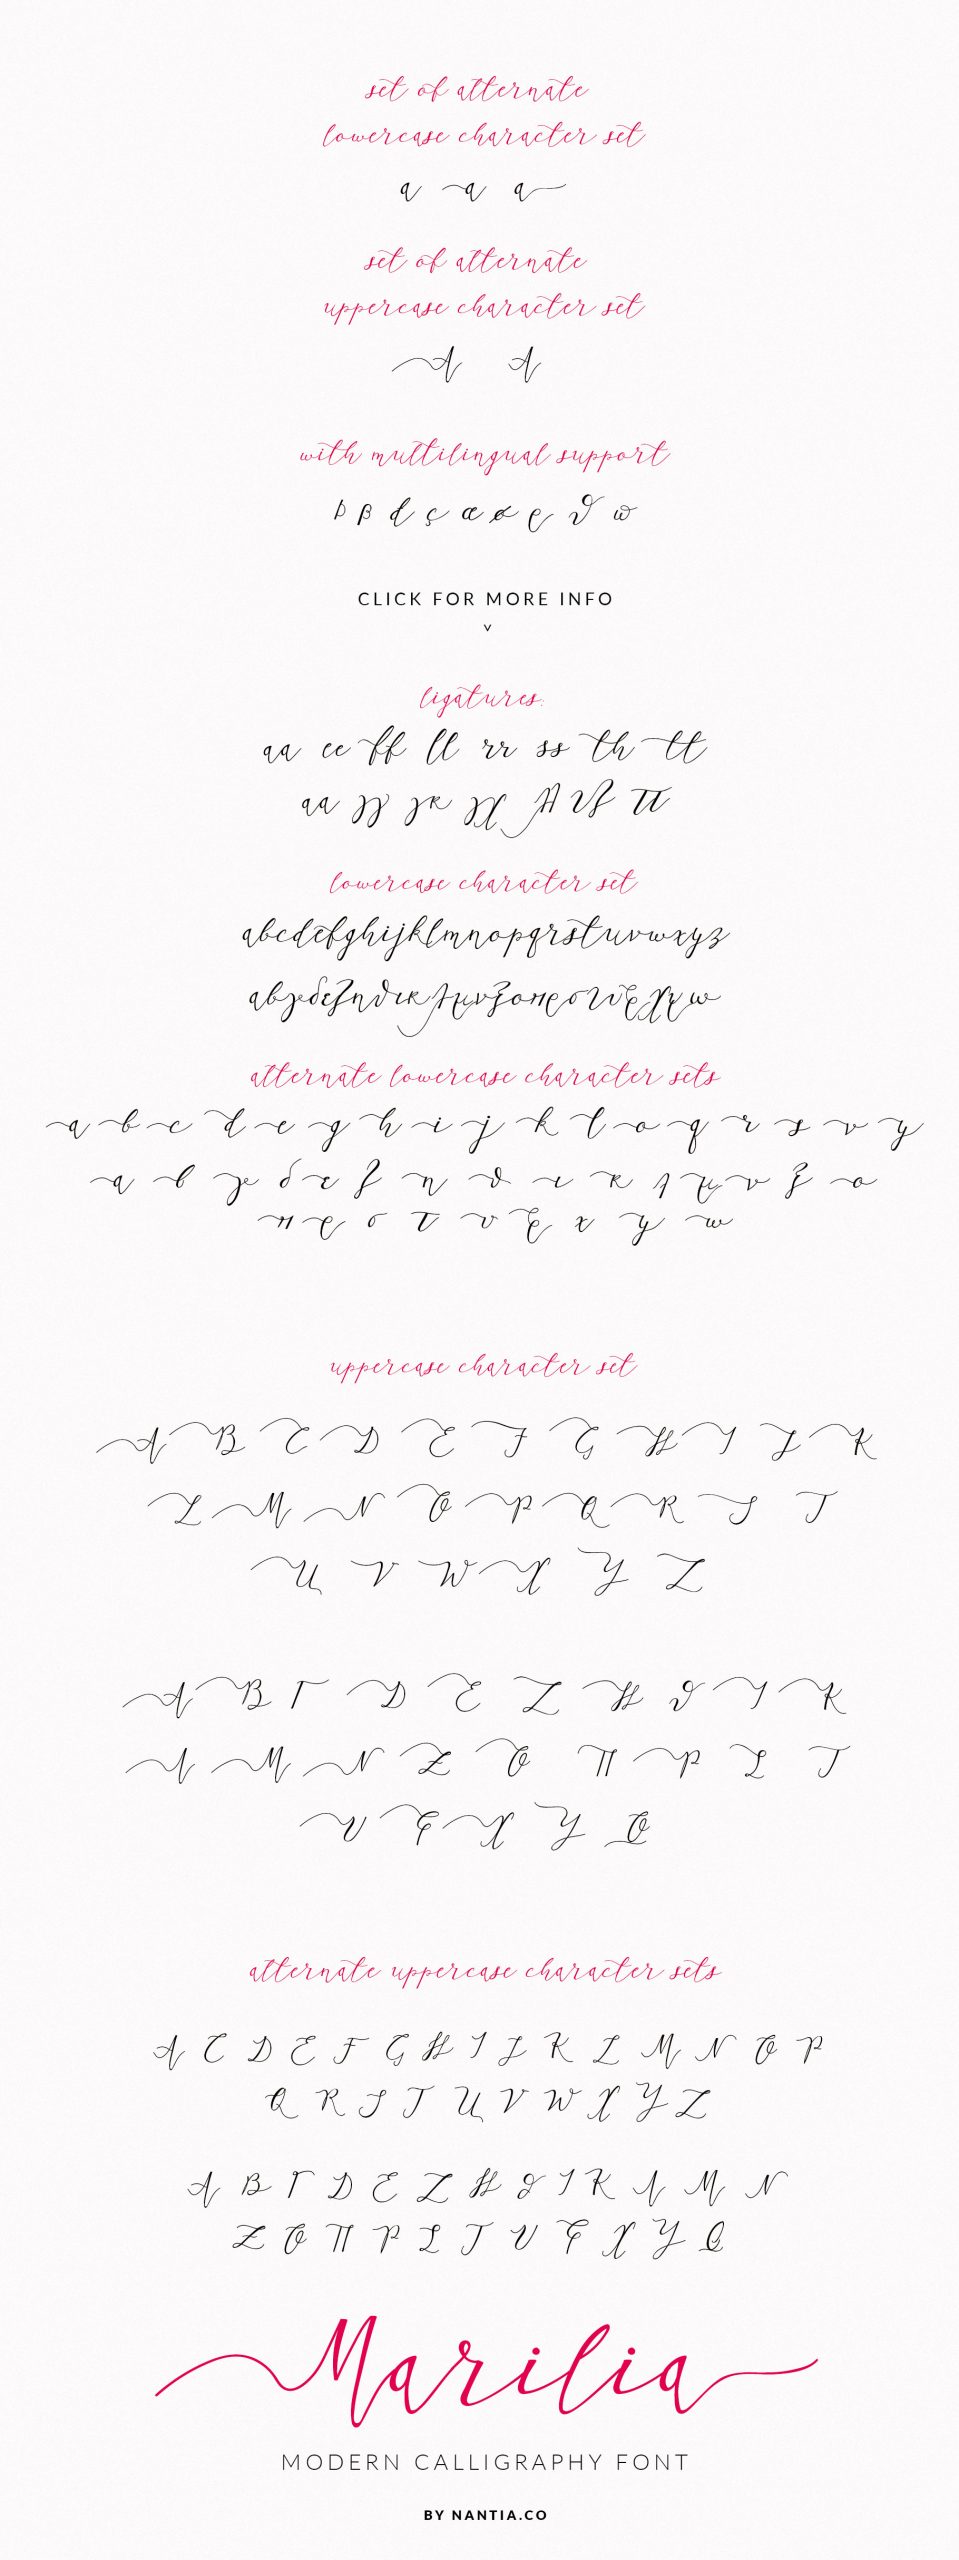 set of alternate
lowercase character set
a a a
set of alternate
uppercase character set
A A
with multilingual support
þ β d ç æ ø ρ ϑ ϖ
CLICK FOR MORE INFO
v
ligatures:
aa ee ff ll rr ss th tt
αα γγ γκ γχ λλ τζ ττ
lowercase character set
abcdefghijklmnopqrstuvwxyz
αβγδεζηθικλμνξοπρστυφχψω
alternate lowercase character sets
a b c d e g h i j k l o q r s v y
α β γ δ ε ζ η θ ι κ λ μ ν ξ ο
π ρ σ τ υ φ χ ψ ω
uppercase character set
A B C D E F G H I J K
L M N O P Q R S T
U V W X Y Z
Α Β Γ Δ Ε Ζ Η Θ Ι Κ
Λ Μ Ν Ξ Ο Π Ρ Σ Τ
Υ Φ Χ Ψ Ω
alternate uppercase character sets
A C D E F G H I J K L M N O P
Q R S T U V W X Y Z
Α Β Γ Δ Ε Ζ Η Θ Ι Κ Λ Μ Ν
Ξ Ο Π Ρ Σ Τ Υ Φ Χ Ψ Ω
Marilia
MODERN CALLIGRAPHY FONT
BY NANTIA.CO